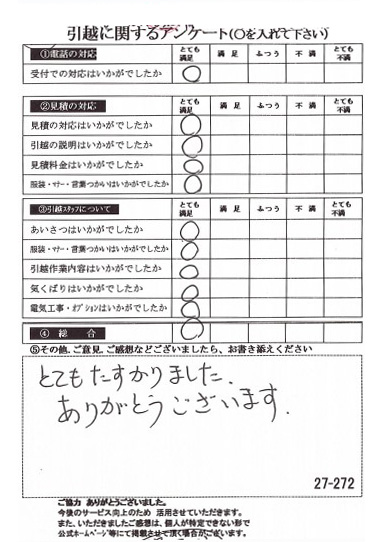 引越に関するアンケート(○を入れて下さい)
①電話の対応 とても満足 満足 ふつう 不満 とても不満
受付での対応はいかがでしたか ○
②見積の対応 とても満足 満足 ふつう 不満 とても不満
見積の対応はいかがでしたか ○
引越の説明はいかがでしたか ○
見積料金はいかがでしたか ○
服装・マナー・言葉つかいはいかがでしたか ○
③引越スタッフについて とても満足 満足 ふつう 不満 とても不満
あいさつはいかがでしたか ○
服装・マナー・言葉つかいはいかがでしたか ○
引越作業内容はいかがでしたか ○
気くばりはいかがでしたか ○
電気工事・オプションはいかがでしたか ○
④ 総 合 ○
⑤その他、ご意見、ご感想などございましたら、お書き添えください
とてもたすかりました.
ありがとうございます.
27-272
ご協力 ありがとうございました。
今後のサービス向上のため 活用させていただきます。
また、いただきましたご感想は、個人が特定できない形で
公式ホームページ等にて掲載させて頂く場合がございます。